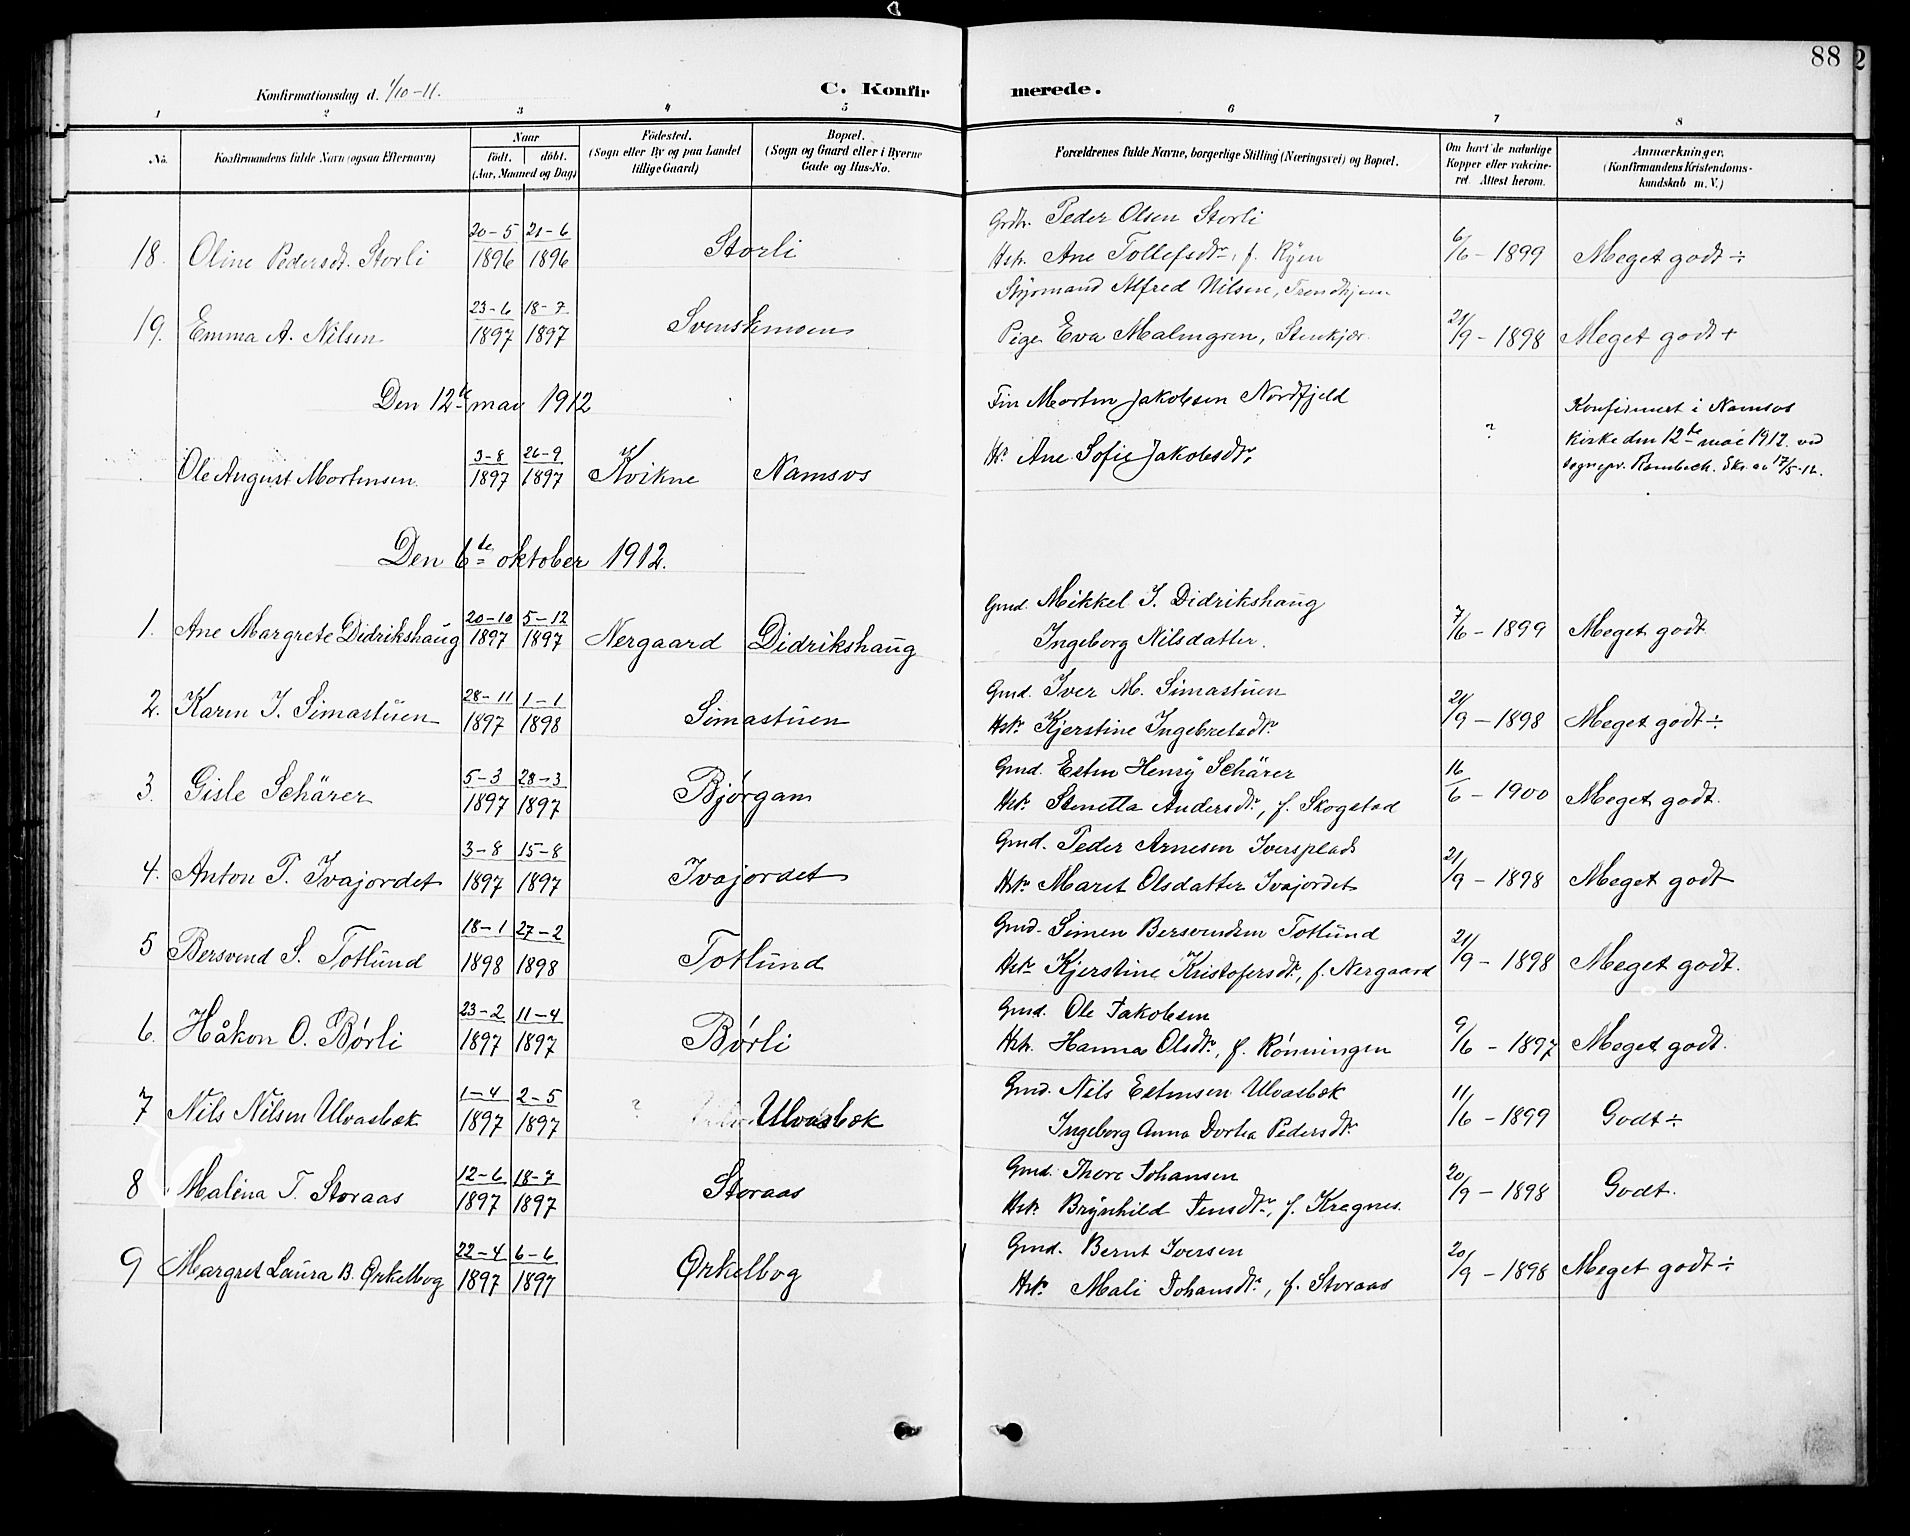 88
2
Konfirmationsdag d. 1/10-11.
C. Konfirmerede.
1 2 3 4 5 6 7 8
No. Konfirmandens fulde Navn (ogsaa Efternavn) Naar født. døbt. (Aar, Maaned og Dag) Fødested. (Sogn eller By og paa Landet tillige Gaard) Bopæl. (Sogn og Gaard eller i Byerne Gade og Hus-No. Forældrenes fulde Navne, borgerlige Stilling (Næringsvei) og Bopæl. Om havt de naturlige Kopper eller vakcineret. Attest herom. Anmærkninger. (Konfirmandens Kristendomskundskab m. V.)
20-5 21-6 Grdbr. Peder Olsen Storli
18. Oline Pedersdt. Storli 1896 1896 Storli Hstr. Ane Tollefsdtr., f. Ryen 6/6 - 1899 Meget godt ÷
23-6 18-7 Styrmand Alfred Nilsen, Trondhjem
19. Emma A. Nilsen 1897 1897 Svenskmoen Pige Eva Malmgren, Stenkjær. 21/9 - 1898 Meget godt +
Den 12te mai 1912
Fin Morten Jakobsen Nordfjeld Konfirmert i Namsos
3-8 26-9 Kirke den 12te mai 1912 ved
Ole August Mortensen. 1897 1897 Kvikne Namsos Hr. Ane Sofie Jakobsdtr. ? sognepr. Rambech. Skr. av 17/5-12.
Den 6te oktober 1912.
20-10 5-12 Gmd. Mikkel J. Didrikshaug
1. Ane Margrete Didrikshaug 1897 1897 Nergaard Didrikshaug Ingeborg Nilsdatter. 7/6 - 1899 Meget godt
28-11 1-1 Gmd. Iver M. Simastuen
2. Karen I. Simastuen 1897 1898 Simastuen Hstr. Kjerstine Ingebretsdtr. 21/9 - 1898 Meget godt ÷
5-3 28-3 Gmd. Esten Henry Schärer
3. Gisle Schärer 1897 1897 Bjørgam Hstr. Stenetta Andersdtr., f. Skogstad 16/6 - 1900 Meget godt.
3-8 15-8 Gmd. Peder Arnesen Iversplads
4. Anton P. Ivajordet 1897 1897 Ivajordet Hstr. Maret Olsdatter Ivajordet 21/9 - 1898 Meget godt
18-1 27-2 Gmd. Simen Bersvendsen Totlund
5 Bersvend S. Totlund 1898 1898 Totlund Hstr. Kjerstine Kristofersdtr., f. Nergaard 21/9 - 1898 Meget godt.
23-2 11-4 Gmd. Ole Jakobsen
6. Håkon O. Børli 1897 1897 Børli Hstr. Hanna Olsdtr., f. Rønningen 9/6 - 1897 Meget godt.
1-4 2-5 Gmd. Nils Estensen Ulvasbæk
7 Nils Nilsen Ulvasbæk 1897 1897 ? Ulvasbæk Ingeborg Anna Dortea Pedersdtr. 11/6 - 1899 Godt ÷
12-6 18-7 Gmd. Thore Johansen
8 Malena T. Storaas 1897 1897 Storaas Hstr. Brynhild Jensdtr., f. Kregnes. 20/9 - 1898 Godt.
22-4 6-6 Gmd. Bernt Iversen
9 Margret Laura B. Ørkelbog 1897 1897 Ørkelbog Hstr. Mali Johansdtr., f. Storaas 20/9 - 1898 Meget godt ÷